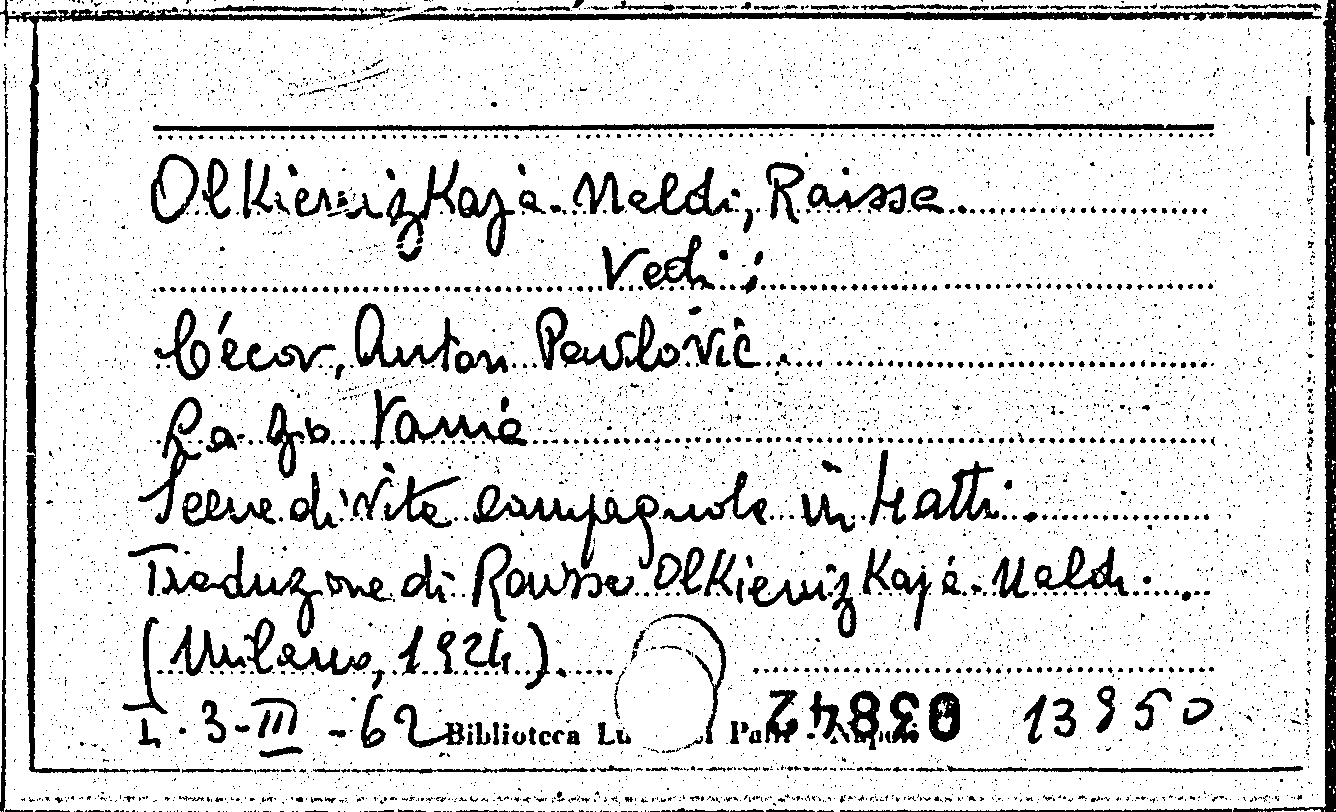 Olkieniz Kajà-Naldi, Raissa.
Vedi:
Cécov, Anton Pavlovič.
Lo zio Vania
Scene di vita campagnola in 4 atti.
Traduzione di Raissa Olkieniz Kajà-Naldi.
(Milano, 1924).
I-3-III-62 Biblioteca 03842 13950